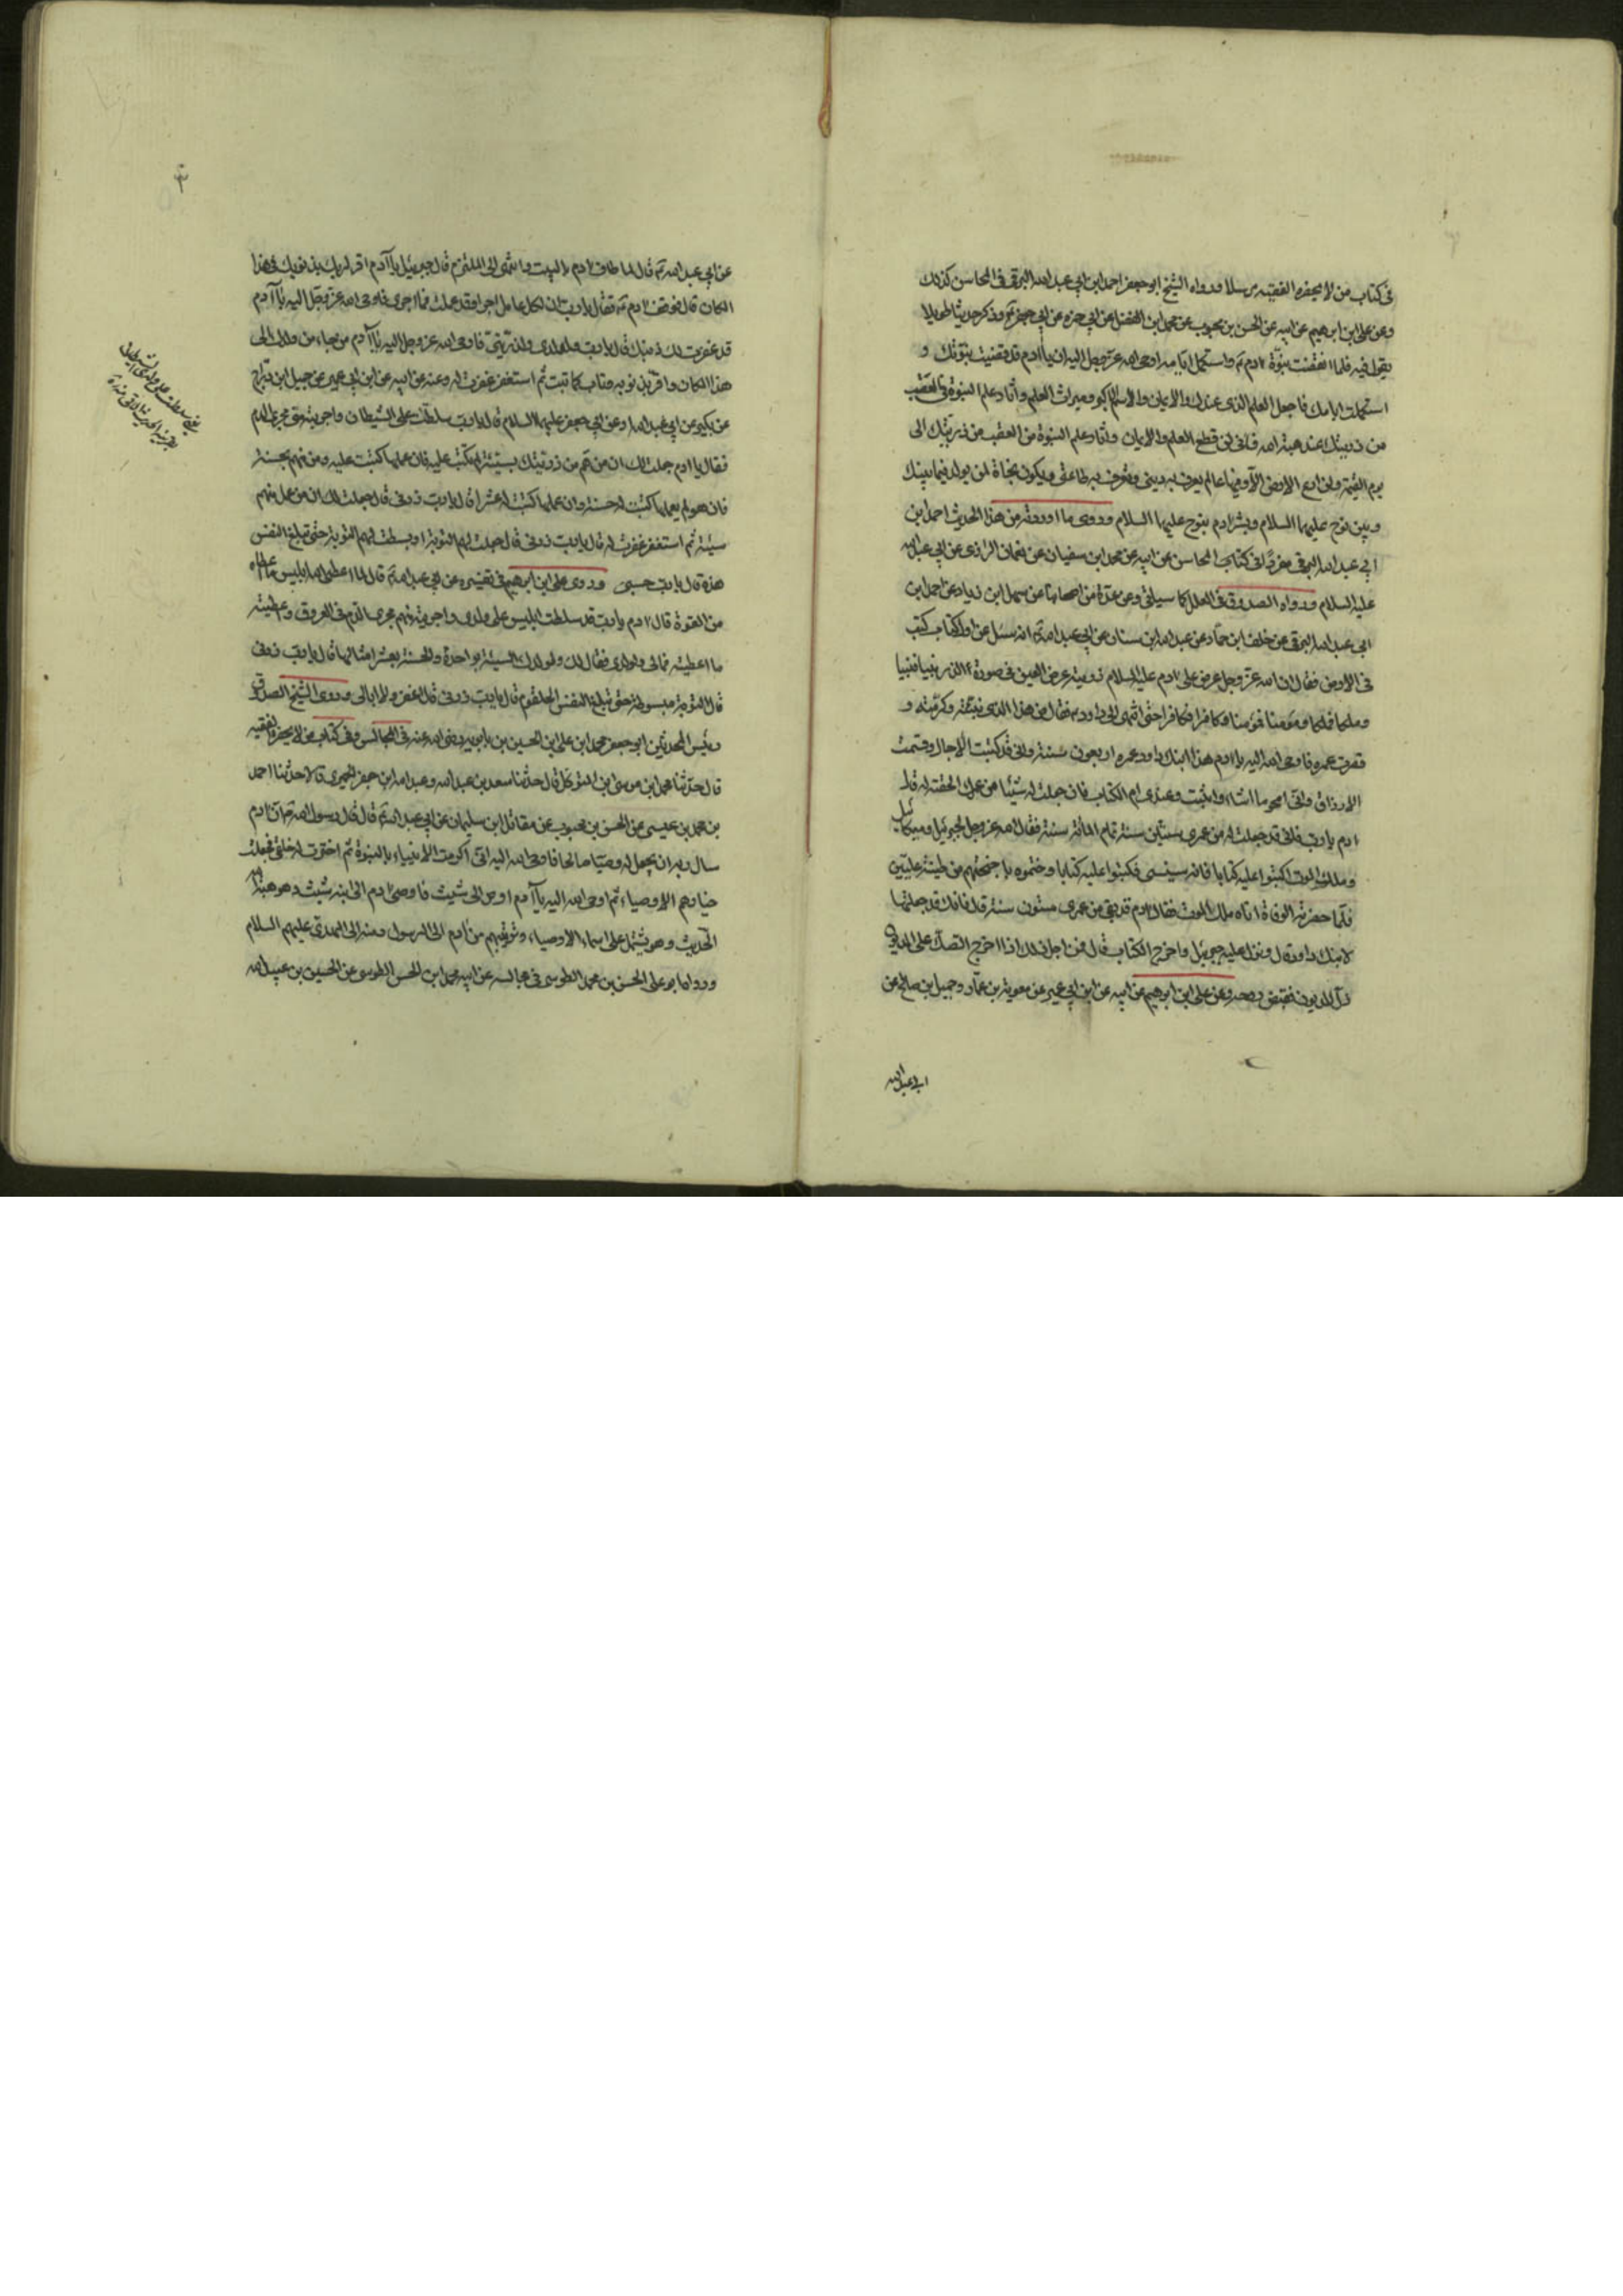 فى كتاب من لا يحضره الفقيه مرسلا ورواه الشيخ ابو جعفر احمد ابن ابي عبد الله البرقى فى المحاسن كذلك
وعن على ابن ابرهيم عن ابيه عن الحسن بن محبوب عن محمد ابن الفضل عن ابي حمزه عن ابي جعفر ع وذكر حديثا طويلا
يقول فيه فلما انقضت نبوّة ادم ع واستكمل ايامه اوحى الله عزّ وجل اليه ان ياآدم قد قضيت نبوّتك و
استكملت ايامك فاجعل العلم الذى عندك والايمان والاسم الاكبر وميراث العلم وآثار علم النبوة فى العقب
من ذريتك عند هبة الله فانى لن قطع العلم والايمان وآثار علم النبوة من العقب من ذريتك الى
يوم القيمة ولن ادع الارض الّا وفيها عالم يعرف به دينى وتعرف به طاعتى ويكون نجاة لمن يولد فيما بينك
وبين نوح عليهما السلام وبشر ادم بنوح عليهما السلام وروى ما اوردته من هذا الحديث احمد ابن
ابي عبد الله البرقى مفردًا فى كتاب المحاسن عن ابيه عن محمد ابن سفيان عن نعمان الرازى عن ابي عبد الله
عليه السلام ورواه الصدوق فى العلل كما سياتى وعن عدّة من اصحابنا عن سهل ابن زياد عن احمد ابن
ابى عبد الله البرقى عن خلف ابن حمّاد عن عبد الله ابن سنان عن ابي عبد الله ع انه سئل عن اول كتاب كتب
فى الارض فقال ان الله عزّ وجل عرض على ادم عليه السلام ذريته عرض العين فى صورة الذر نبيا فنبيا
وملكا فملكا ومؤمنا فمؤمنا وكافرا فكافرا حتى انتهى الى داود ع فقال من هذا الذى نبئته وكرّمته و
قصرت عمره فاوحى الله اليه يا ادم هذا ابنك داود عمره اربعون سنة وانى قد كتبت الآجال وقسمت
الارزاق وانى امحو ما اشاء واثبت وعندى ام الكتاب فان جعلت له شيئا من عمرك الحقته له قال
ادم يا رب فانى قد جعلت له من عمرى ستين سنة تمام المائة سنة فقال الله عز وجل لجبرئيل وميكائيل
وملك الموت اكتبوا عليه كتابا فانه سينسى فكتبوا عليه كتابا وختموه باجنحتهم من طينة عليّين
فلمّا حضرته الوفاة اتاه ملك الموت فقال ادم قد بقى من عمرى ستون سنة قال فانك قد جعلتها
لابنك داود قال ونزل عليه جبرئيل واخرج الكتاب قال فمن اجل ذلك اذا اخرج الصك على المديون
ذل المديون فقبض روحه وعن على ابن ابرهيم عن ابيه عن ابن ابي عمير عن معوية بن عمّار وجميل ابن صالح عن
ابي عبد الله
عن ابي عبد الله ع قال لما طاف ادم بالبيت وانتهى الى الملتزم قال جبرئيل ياآدم اقر لربك بذنوبك فى هذا
المكان قال فوقف ادم ع فقال يا رب ان لكل عامل اجرا وقد عملت فما اجرى فاوحى الله عزّ وجل اليه ياآدم
قد غفرت لك ذنبك قال يا رب ولولدى ولذرّيتى فاوحى الله عز وجل اليه ياآدم من جاء من ولدك الى
هذا المكان واقرّ بذنوبه وتاب كما تبت ثم استغفر غفرت له وعنه عن ابيه عن ابن ابي عمير عن جميل ابن درّاج
عن بكير عن ابي عبد الله او عن ابي جعفر عليهما السلام قال يا رب سلطت على الشيطان واجريته منى مجرى الدم
فقال يا ادم جعلت لك ان من همّ من ذريتك بسيئة لم تكتب عليه فان عملها كتبت عليه ومن همّ بحسنة
فان هو لم يعملها كتبت له حسنة وان عملها كتبت له عشرا قال يا رب زدنى قال جعلت لك ان من عمل منهم
سيئة ثم استغفر غفرت له قال يا رب زدنى قال جعلت لهم التوبة او بسطت لهم التوبة حتى تبلغ النفس
هذه قال يا رب حسبى وروى على ابن ابرهيم فى تفسيره عن ابي عبد الله ع قال لما اعطى الله ابليس ما اعطاه
من القوة قال ادم يا رب قد سلطت ابليس على ولدى واجريته منهم مجرى الدم فى العروق واعطيته
ما اعطيته فمالى ولولدى فقال لك ولولدك السيئة بواحدة والحسنة بعشر امثالها قال يا رب زدنى
قال التوبة مبسوطة حتى تبلغ النفس الحلقوم قال يا رب زدنى قال اغفر ولا ابالى وروى الشيخ الصدوق
رئيس المحدثين ابو جعفر محمد ابن على ابن الحسين بن بابويه رضى الله عنه فى المجالس وفى كتاب من لا يحضره الفقيه
قال حدّثنا محمد ابن موسى ابن المتوكل قال حدثنا سعد بن عبد الله وعبد الله ابن جعفر الحميرى قالا حدثنا احمد
بن محمد بن عيسى عن الحسن بن محبوب عن مقاتل ابن سليمان عن ابي عبد الله ع قال قال رسول الله ص ان ادم
سال ربه ان يجعل له وصيّا صالحا فاوحى الله اليه انى اكرمت الانبياء بالنبوة ثم اخترت لى خلقى فجعلت
خيارهم الاوصياء ثم اوحى الله اليه ياآدم اوص الى شيث فاوصى ادم الى ابنه شيث وهو هبة الله
الحديث وهو يشتمل على اسماء الاوصياء وترتيبهم من ادم الى الرسول ومنه الى المهدى عليهم السلام
وروا ابو على الحسن بن محمد الطوسى فى مجالسه عن ابيه محمد ابن الحسن الطوسى عن الحسين بن عبيد الله